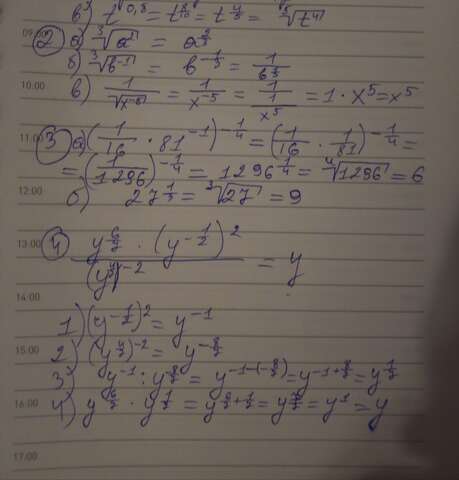 в) t^0,8 = t^(8/10) = t^(4/5) = ⁵√t⁴
09:00
2 а) ³√a² = a^(2/3)
б) ³√b⁻¹ = b^(-1/3) = 1/b^(1/3)
10:00
в) 1/√x⁻⁵ = 1/x⁻⁵ = 1/(1/x⁵) = 1 · x⁵ = x⁵
11:00
3 а) (1/16 · 81⁻¹)^(-1/4) = (1/16 · 1/81)^(-1/4) =
= (1/1296)^(-1/4) = 1296^(1/4) = ⁴√1296 = 6
12:00
б) 27^(1/3) = ³√27 = 9
13:00
4 (y^(6/7) · (y^(-1/2))²)/(y^(4/7))⁻² = y
14:00
1) (y^(-1/2))² = y⁻¹
15:00
2) (y^(4/7))⁻² = y^(-8/7)
3) y⁻¹ : y^(-8/7) = y^(-1-(-8/7)) = y^(-1+8/7) = y^(1/7)
16:00
4) y^(6/7) · y^(1/7) = y^(6/7+1/7) = y^(7/7) = y¹ = y
17:00